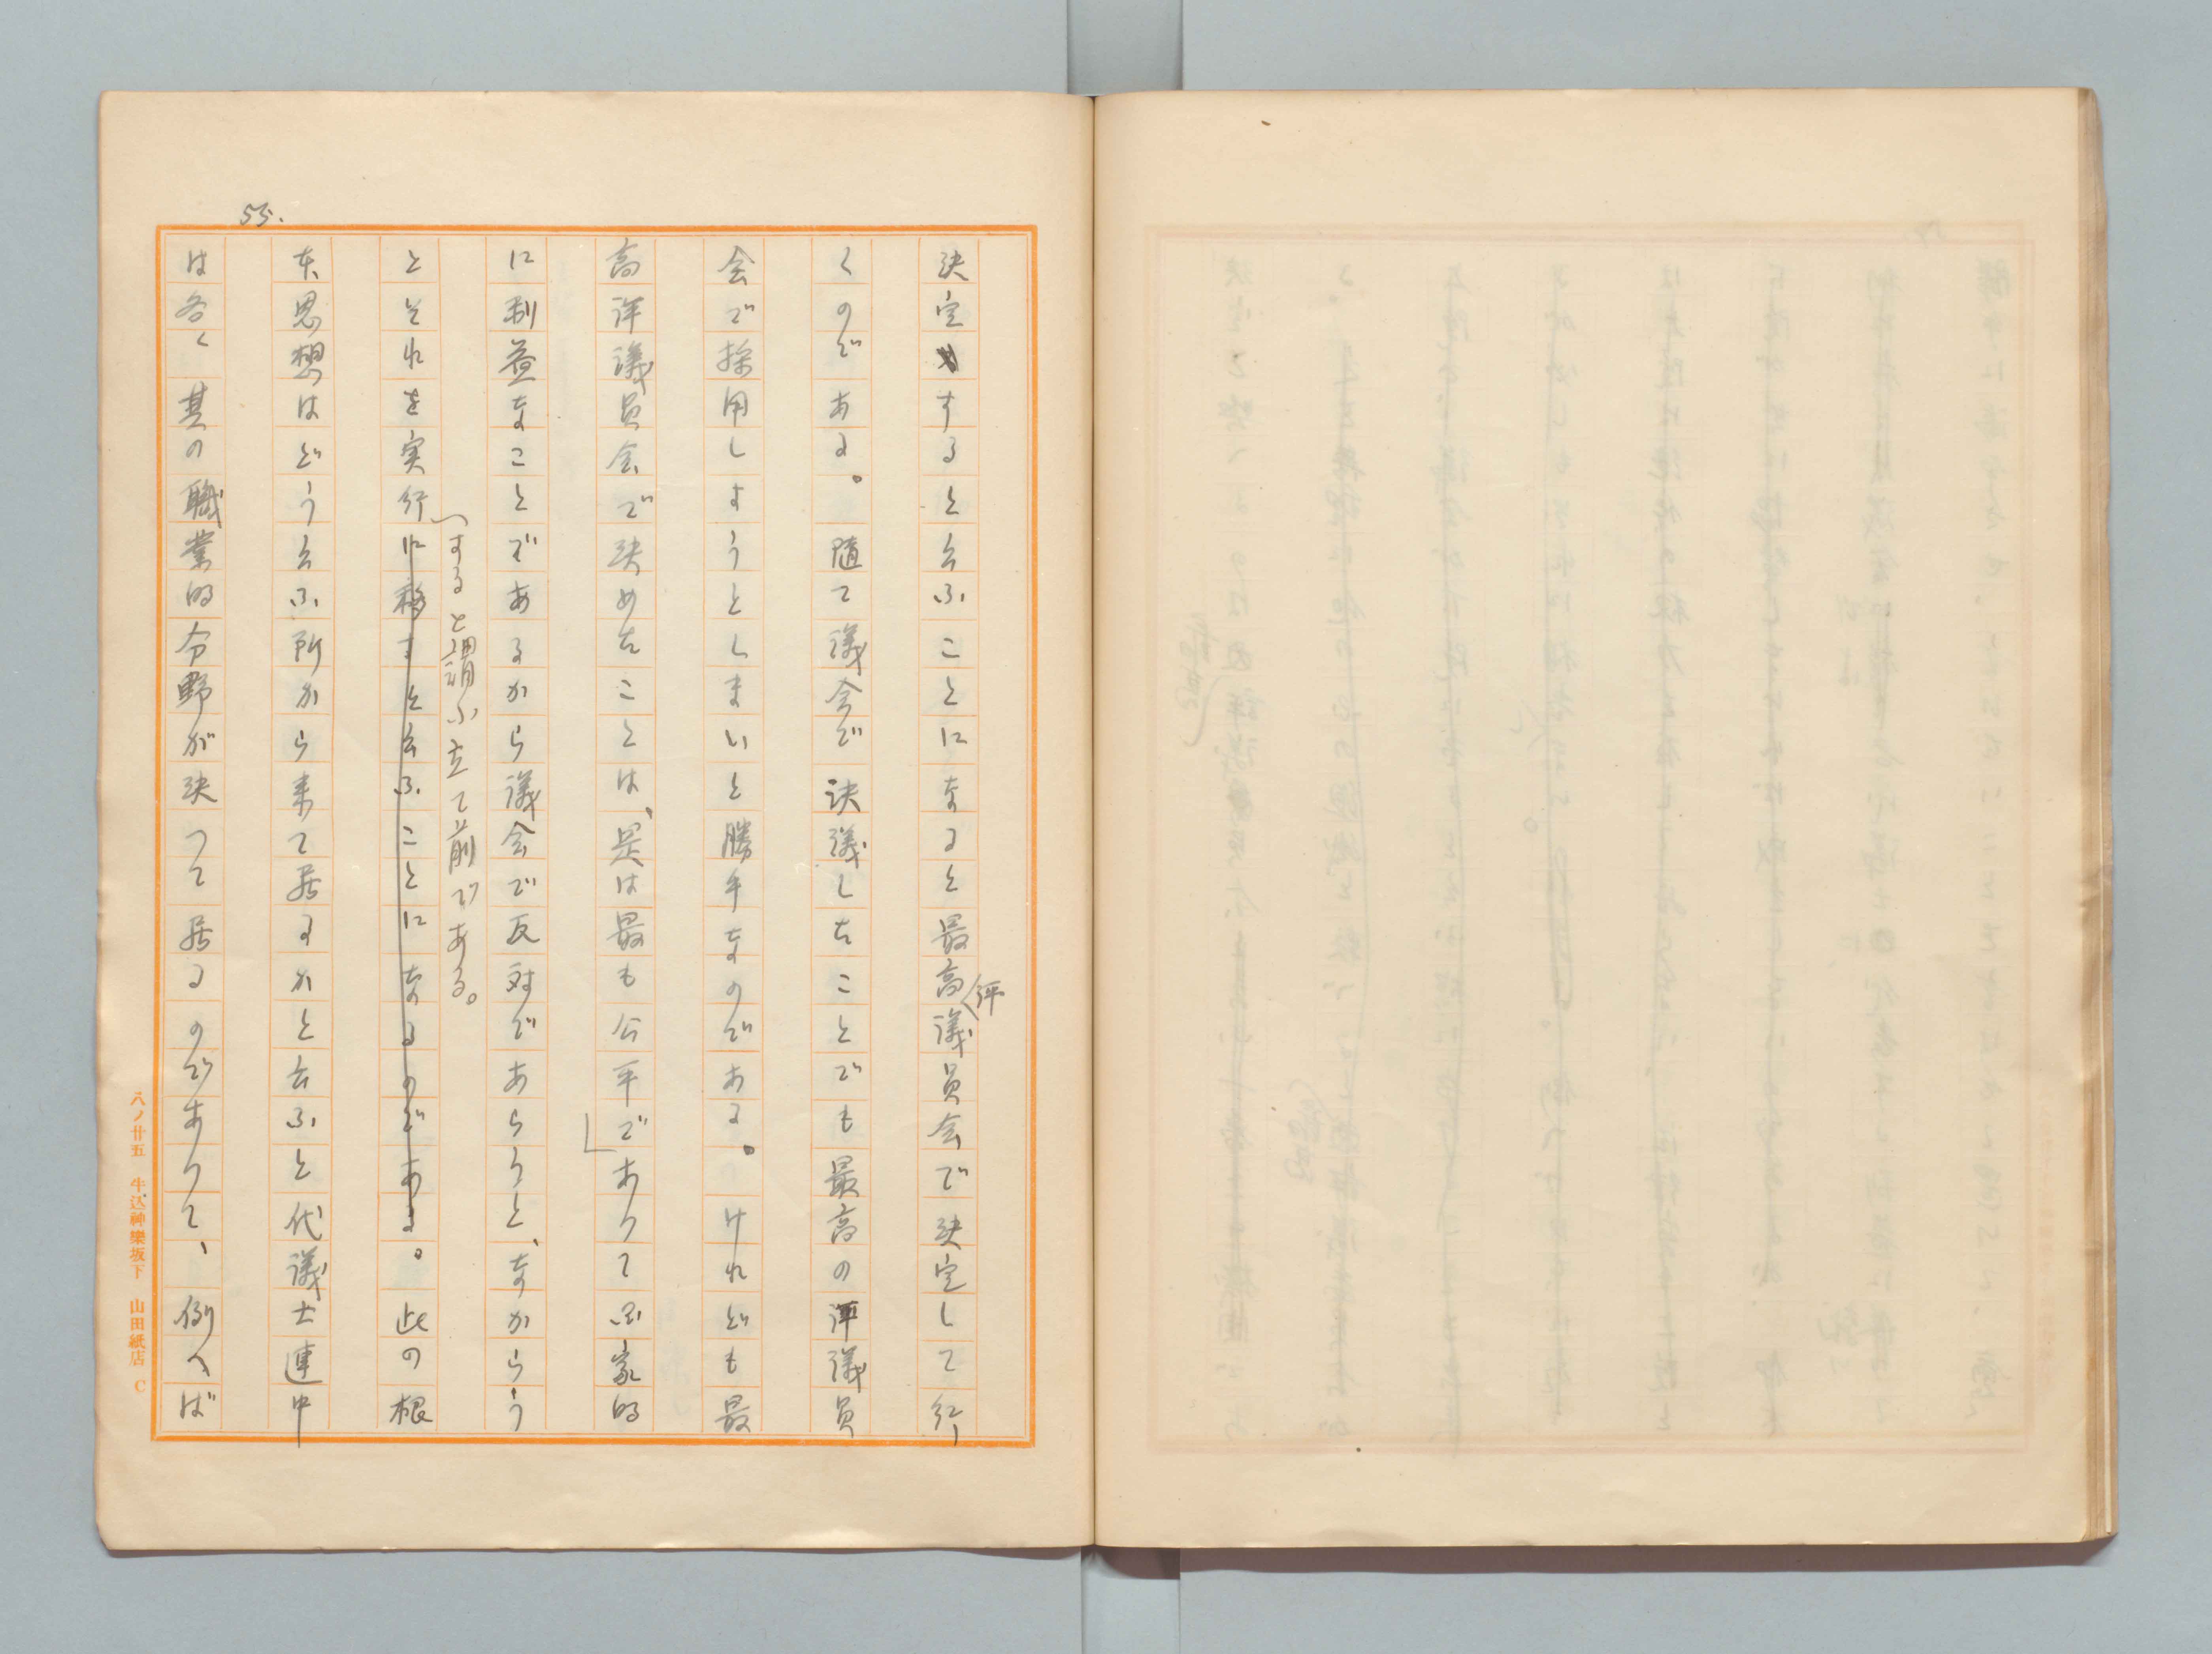 55.
決定すると云ふことになると最高評議員会で決定して行
くのである。随て議会で決議したことでも最高の評議員
会で採用しやうとしまいと勝手なのである。けれども最
高評議員会で決めたことは、是は最も公平でありて国家的
に利益なことであるから議会で反対であらうと、なからう
とそれを実行すると謂ふ立て前である。
に移すと云ふことになるのである。此の根
本思想はどう云ふ所から来て居るかと云ふと代議士連中
は各〻其の職業的分野が決つて居るのでありて、例へば
八ノ廿五 牛込神樂坂下 山田紙店 C